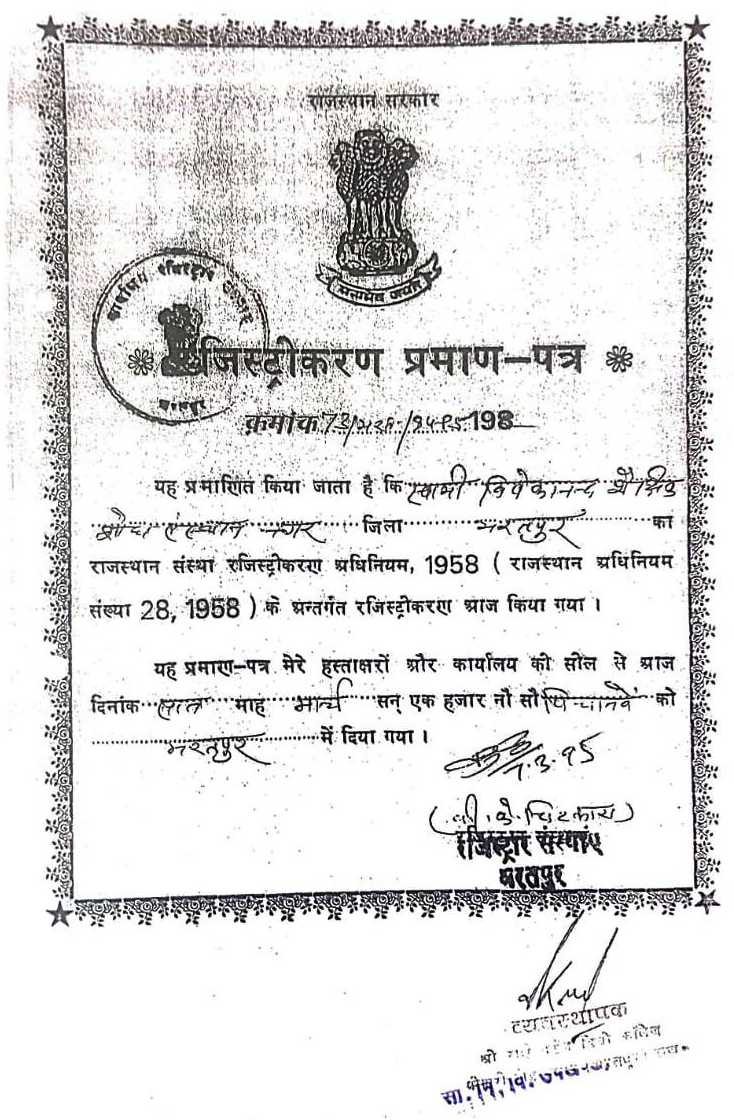 राजस्थान सरकार
सत्यमेव जयते
कार्यालय रजिस्ट्रार
भरतपुर
रजिस्ट्रीकरण प्रमाण–पत्र
क्रमांक 73/भरत/1994-95 198
यह प्रमाणित किया जाता है कि स्वामी विवेकानन्द शैक्षिक
शोध संस्थान नगर जिला भरतपुर का
राजस्थान संस्था रजिस्ट्रीकरण अधिनियम, 1958 ( राजस्थान अधिनियम
संख्या 28, 1958 ) के अन्तर्गत रजिस्ट्रीकरण आज किया गया ।
यह प्रमाण–पत्र मेरे हस्ताक्षरों और कार्यालय की सील से आज
दिनांक सात माह मार्च सन् एक हजार नौ सौ पिच्यानवें को
भरतपुर में दिया गया ।
7.3.95
रजिस्ट्रार संस्थाएं
भरतपुर
व्यवस्थापक
श्री